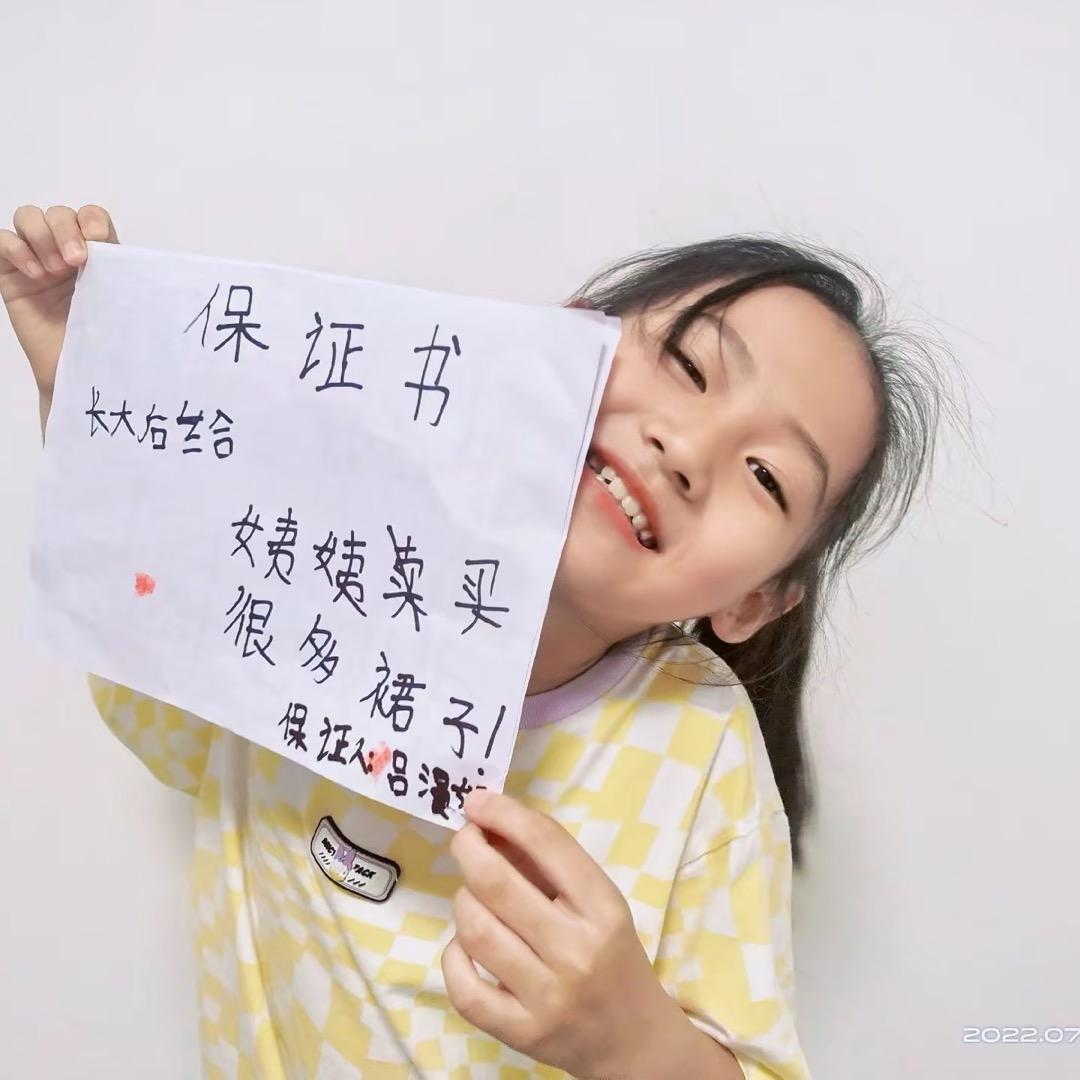 保证书
长大后给
姨姨菜买
很多裙子!
保证人:吕漫
PACK
2022.07